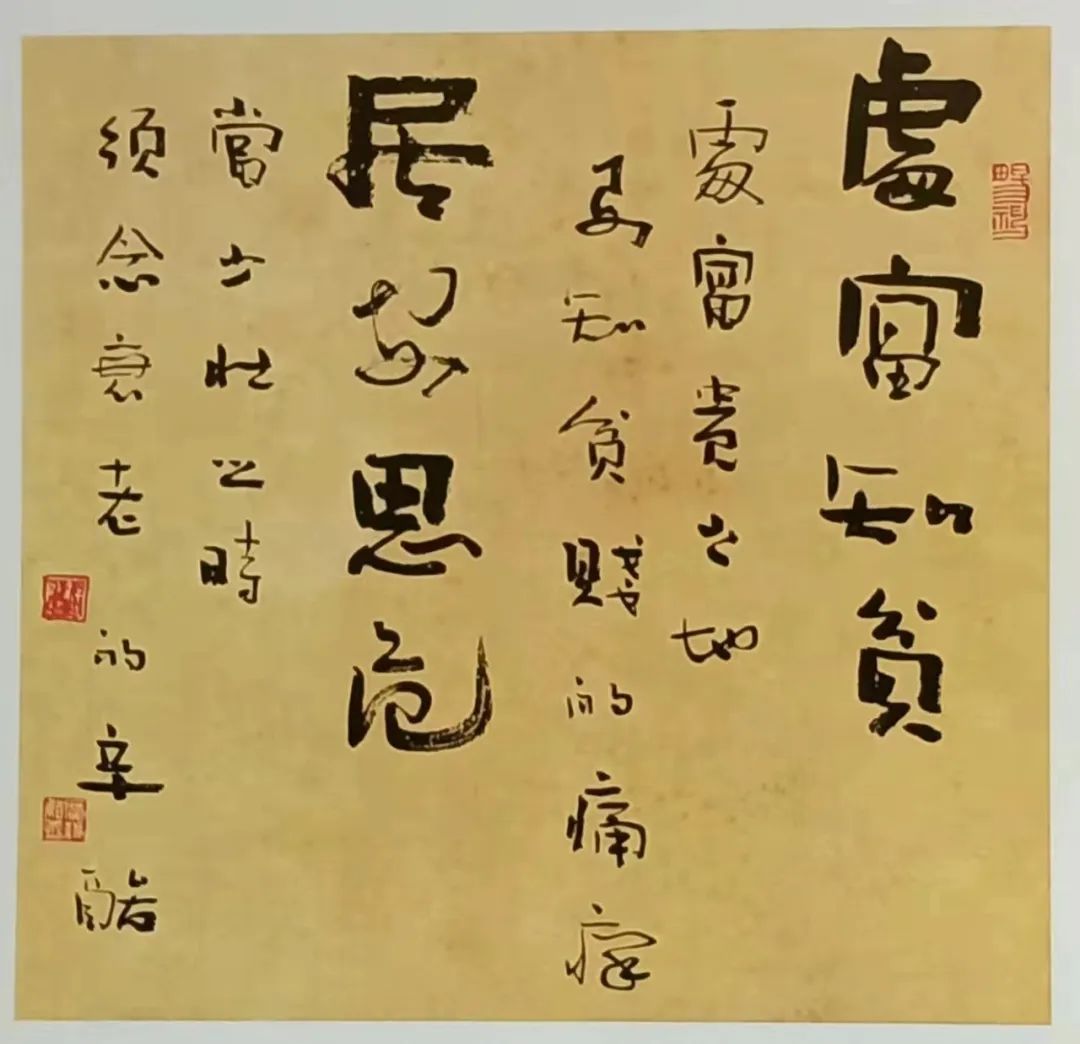 處富知貧
處富貴之地
要知貧賤的痛癢
居安思危
當少壯之時
須念衰老的辛酸